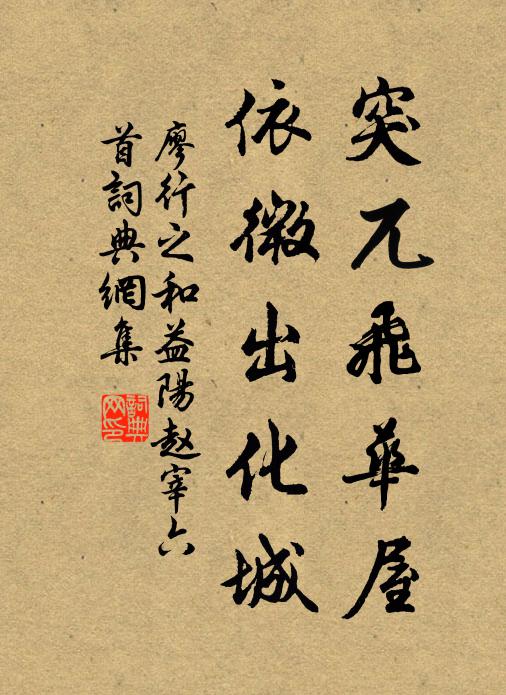 突兀飛華屋
依微出化城
廖行之和益陽趙宰六
首詞典網集
詞典網印